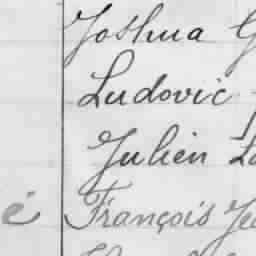 Joshua G
Ludovic
Julien La
é François Je